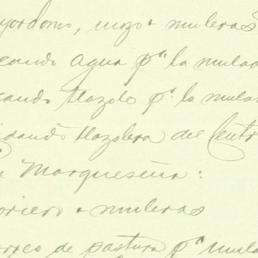 yordomo, mozo a muleras
eando agua pª la mulada
cando tlazole pª la mular
idando tlazolera del Centr
n Marquesina:
oriero a muleras
orreo de pastura pª mula